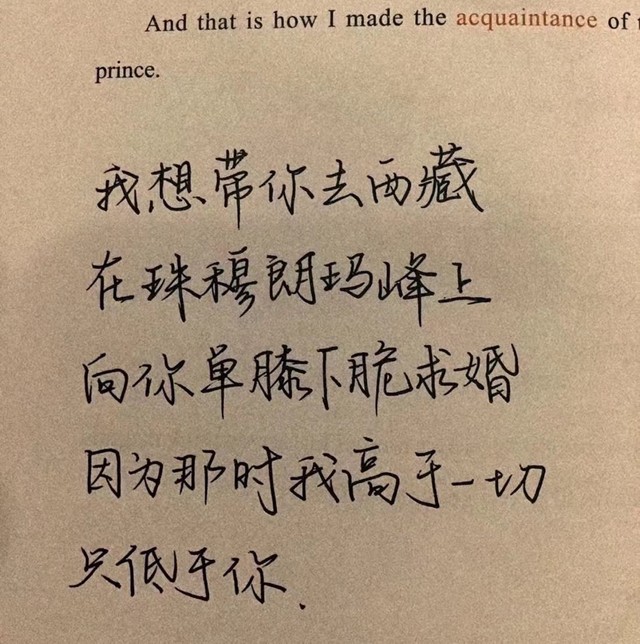 And that is how I made the acquaintance of
prince.
我想带你去西藏
在珠穆朗玛峰上
向你单膝下脆求婚
因为那时我高于一切
只低于你.